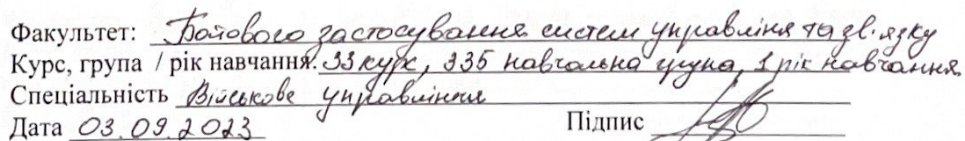 Факультет: Бойового застосування систем управління та зв'язку
Курс, група / рік навчання. 33 курс, 335 навчальна група, 1 рік навчання
Спеціальність Військове управління
Дата 03.09.2023 Підпис